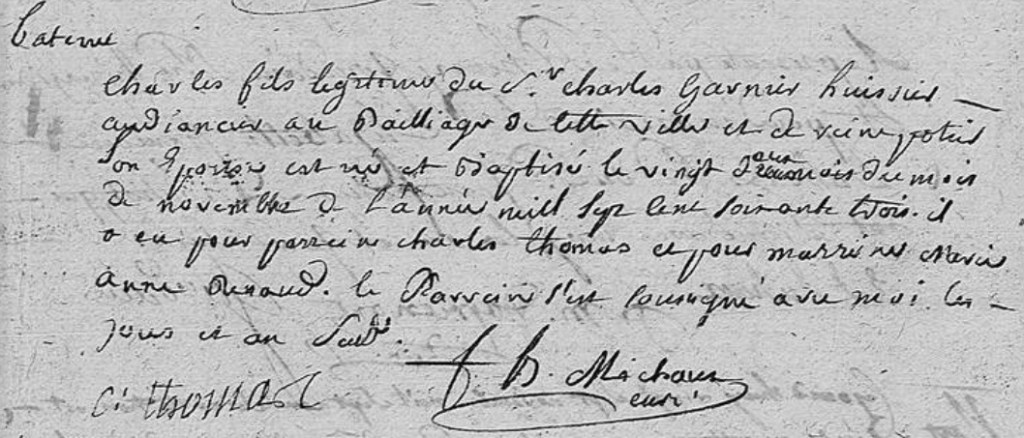 batême
charles fils legitime du S.r charles garnier huissier
audiancier au Bailliage de cette ville et de reine potier
son Epouse est né et Baptisé le vingt deux du mois
de novembre de l'année mill sept cent soixante trois. il
a eu pour parrein charles thomas et pour marreine Marie
anne Renaud. le Parrein s'est sousigné avec moi les
jours et an susd.
C. thomas f h. Michaux
curé